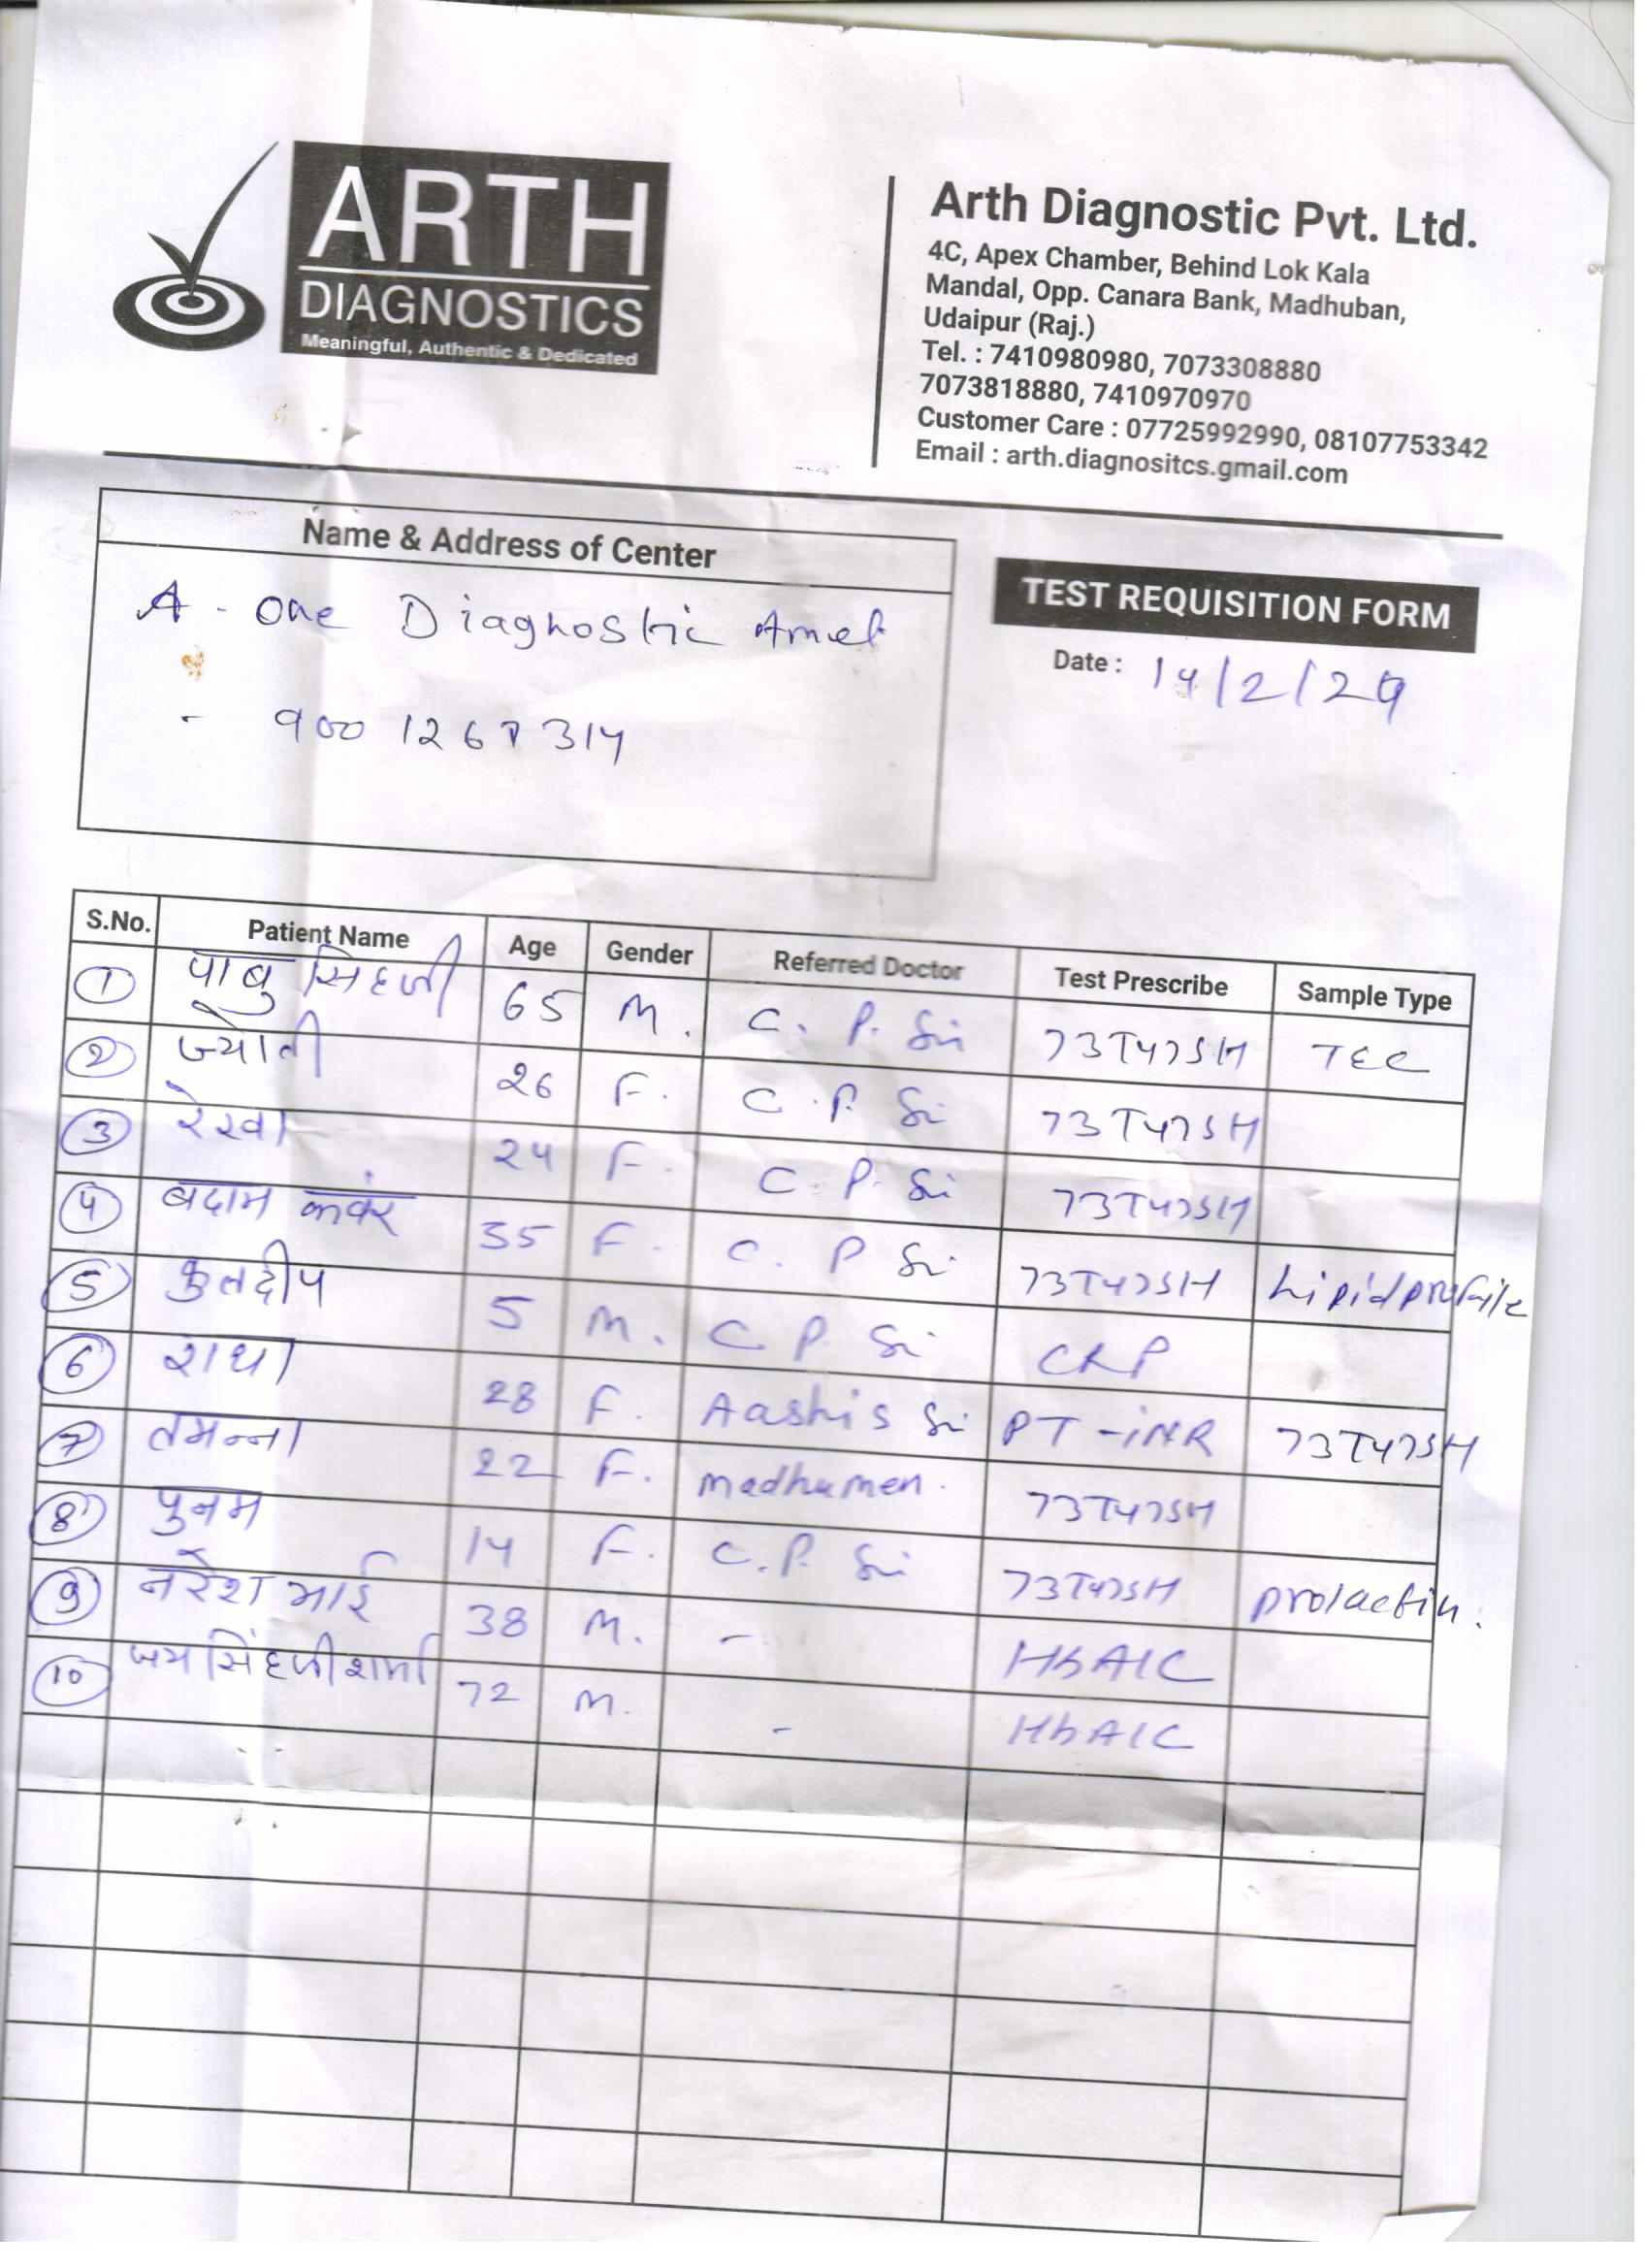 ARTH
DIAGNOSTICS
Meaningful, Authentic & Dedicated
Arth Diagnostic Pvt. Ltd.
4C, Apex Chamber, Behind Lok Kala
Mandal, Opp. Canara Bank, Madhuban,
Udaipur (Raj.)
Tel. : 7410980980, 7073308880
7073818880, 7410970970
Customer Care : 07725992990, 08107753342
Email : arth.diagnositcs.gmail.com
Name & Address of Center
A - One Diagnostic Amet
- 9001267314
TEST REQUISITION FORM
Date : 14/2/24
S.No. Patient Name Age Gender Referred Doctor Test Prescribe Sample Type
1 पाबु सिंहजी 65 M. C. P. Sir T3T4TSH TEC
2 ज्योती 26 F. C. P. Sir T3T4TSH
3 रेखा 24 F. C. P. Sir T3T4TSH
4 बदाम कवंर 35 F. C. P Sir T3T4TSH Lipid profile
5 कुलदीप 5 M. C P. Sir CRP
6 राधा 28 F. Aashis Sir PT-iNR T3T4TSH
7 तमन्ना 22 F. Madhumen. T3T4TSH
8 पुनम 14 F. C. P. Sir T3T4TSH prolactin.
9 नरेश भाई 38 M. - HbA1C
10 जय सिंहजी शर्मा 72 M. - HbA1C